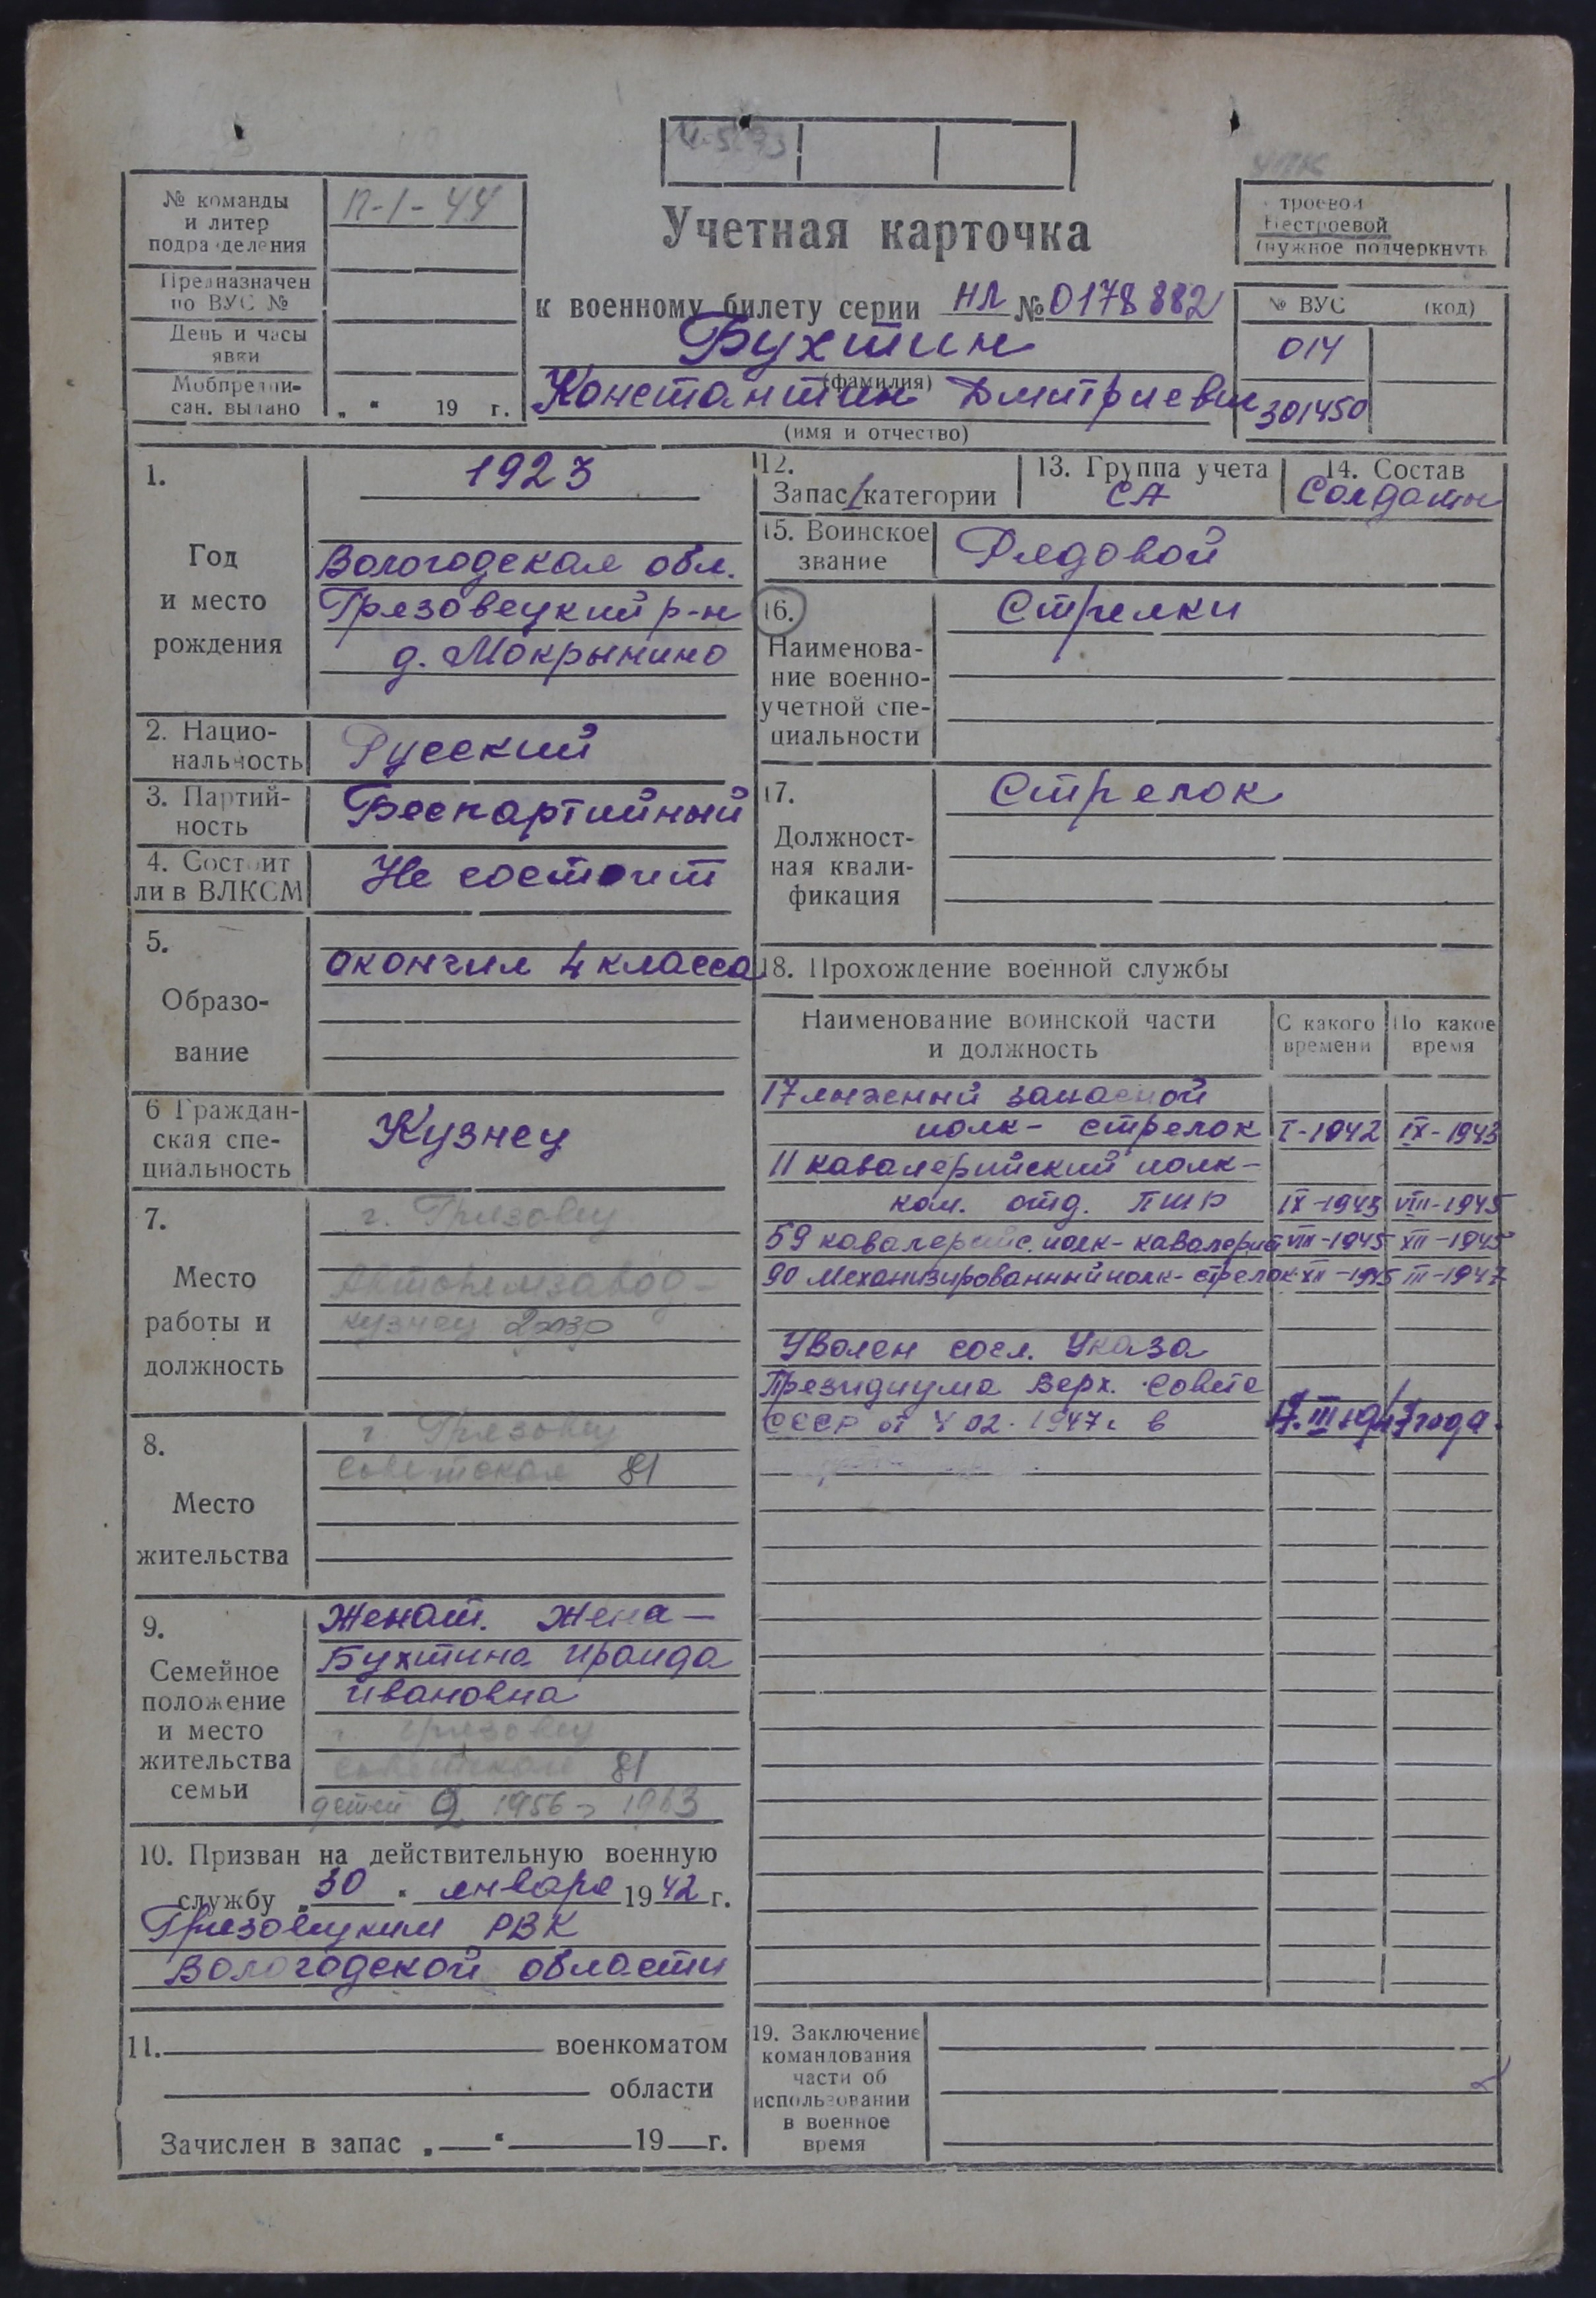 № команды
и литер
подразделения
П-1-44
Предназначен
по ВУС №
День и часы
явки
Мобпредпи-
сан. выдано
„ “ 19 г.
Учетная карточка
к военному билету серии НЛ № 0178882
Бухтин
(фамилия)
Константин Дмитриевич
(имя и отчество)
Строевой
Нестроевой
(нужное подчеркнуть
№ ВУС (код)
014
301450
1.
Год
и место
рождения
1923
Вологодская обл.
Грязовецкий р-н
д. Мокрынино
2. Нацио-
нальность
Русский
3. Партий-
ность
Беспартийный
4. Состоит
ли в ВЛКСМ
Не состоит
5.
Образо-
вание
окончил 4 класса
6 Граждан-
ская спе-
циальность
Кузнец
7.
Место
работы и
должность
г. Грязовец
Авторемзавод-
кузнец
8.
Место
жительства
г. Грязовец
Советская 81
9.
Семейное
положение
и место
жительства
семьи
Женат. Жена -
Бухтина Ираида
Ивановна
г. Грязовец
Советская 81
детей 2 1956, 1963
10. Призван на действительную военную
службу „30“ января 1942 г.
Грязовецким РВК
Вологодской области
11. военкоматом
области
Зачислен в запас „ “ 19 г.
12.
Запас 1 категории
13. Группа учета
СА
14. Состав
Солдаты
15. Воинское
звание
Рядовой
16.
Наименова-
ние военно-
учетной спе-
циальности
Стрелки
17.
Должност-
ная квали-
фикация
Стрелок
18. Прохождение военной службы
Наименование воинской части
и должность
С какого
времени
По какое
время
17 лыжный запасной
полк - стрелок I-1942 IX-1943
11 кавалерийский полк -
ком. отд. ПТР IX-1943 VIII-1945
59 кавалерийс. полк - кавалерист VIII-1945 XII-1945
90 Механизированный полк - стрелок XII-1945 III-1947
Уволен согл. Указа
Президиума Верх. Совета
СССР от 4 02. 1947г. в III 1947 года.
19. Заключение
командования
части об
использовании
в военное
время